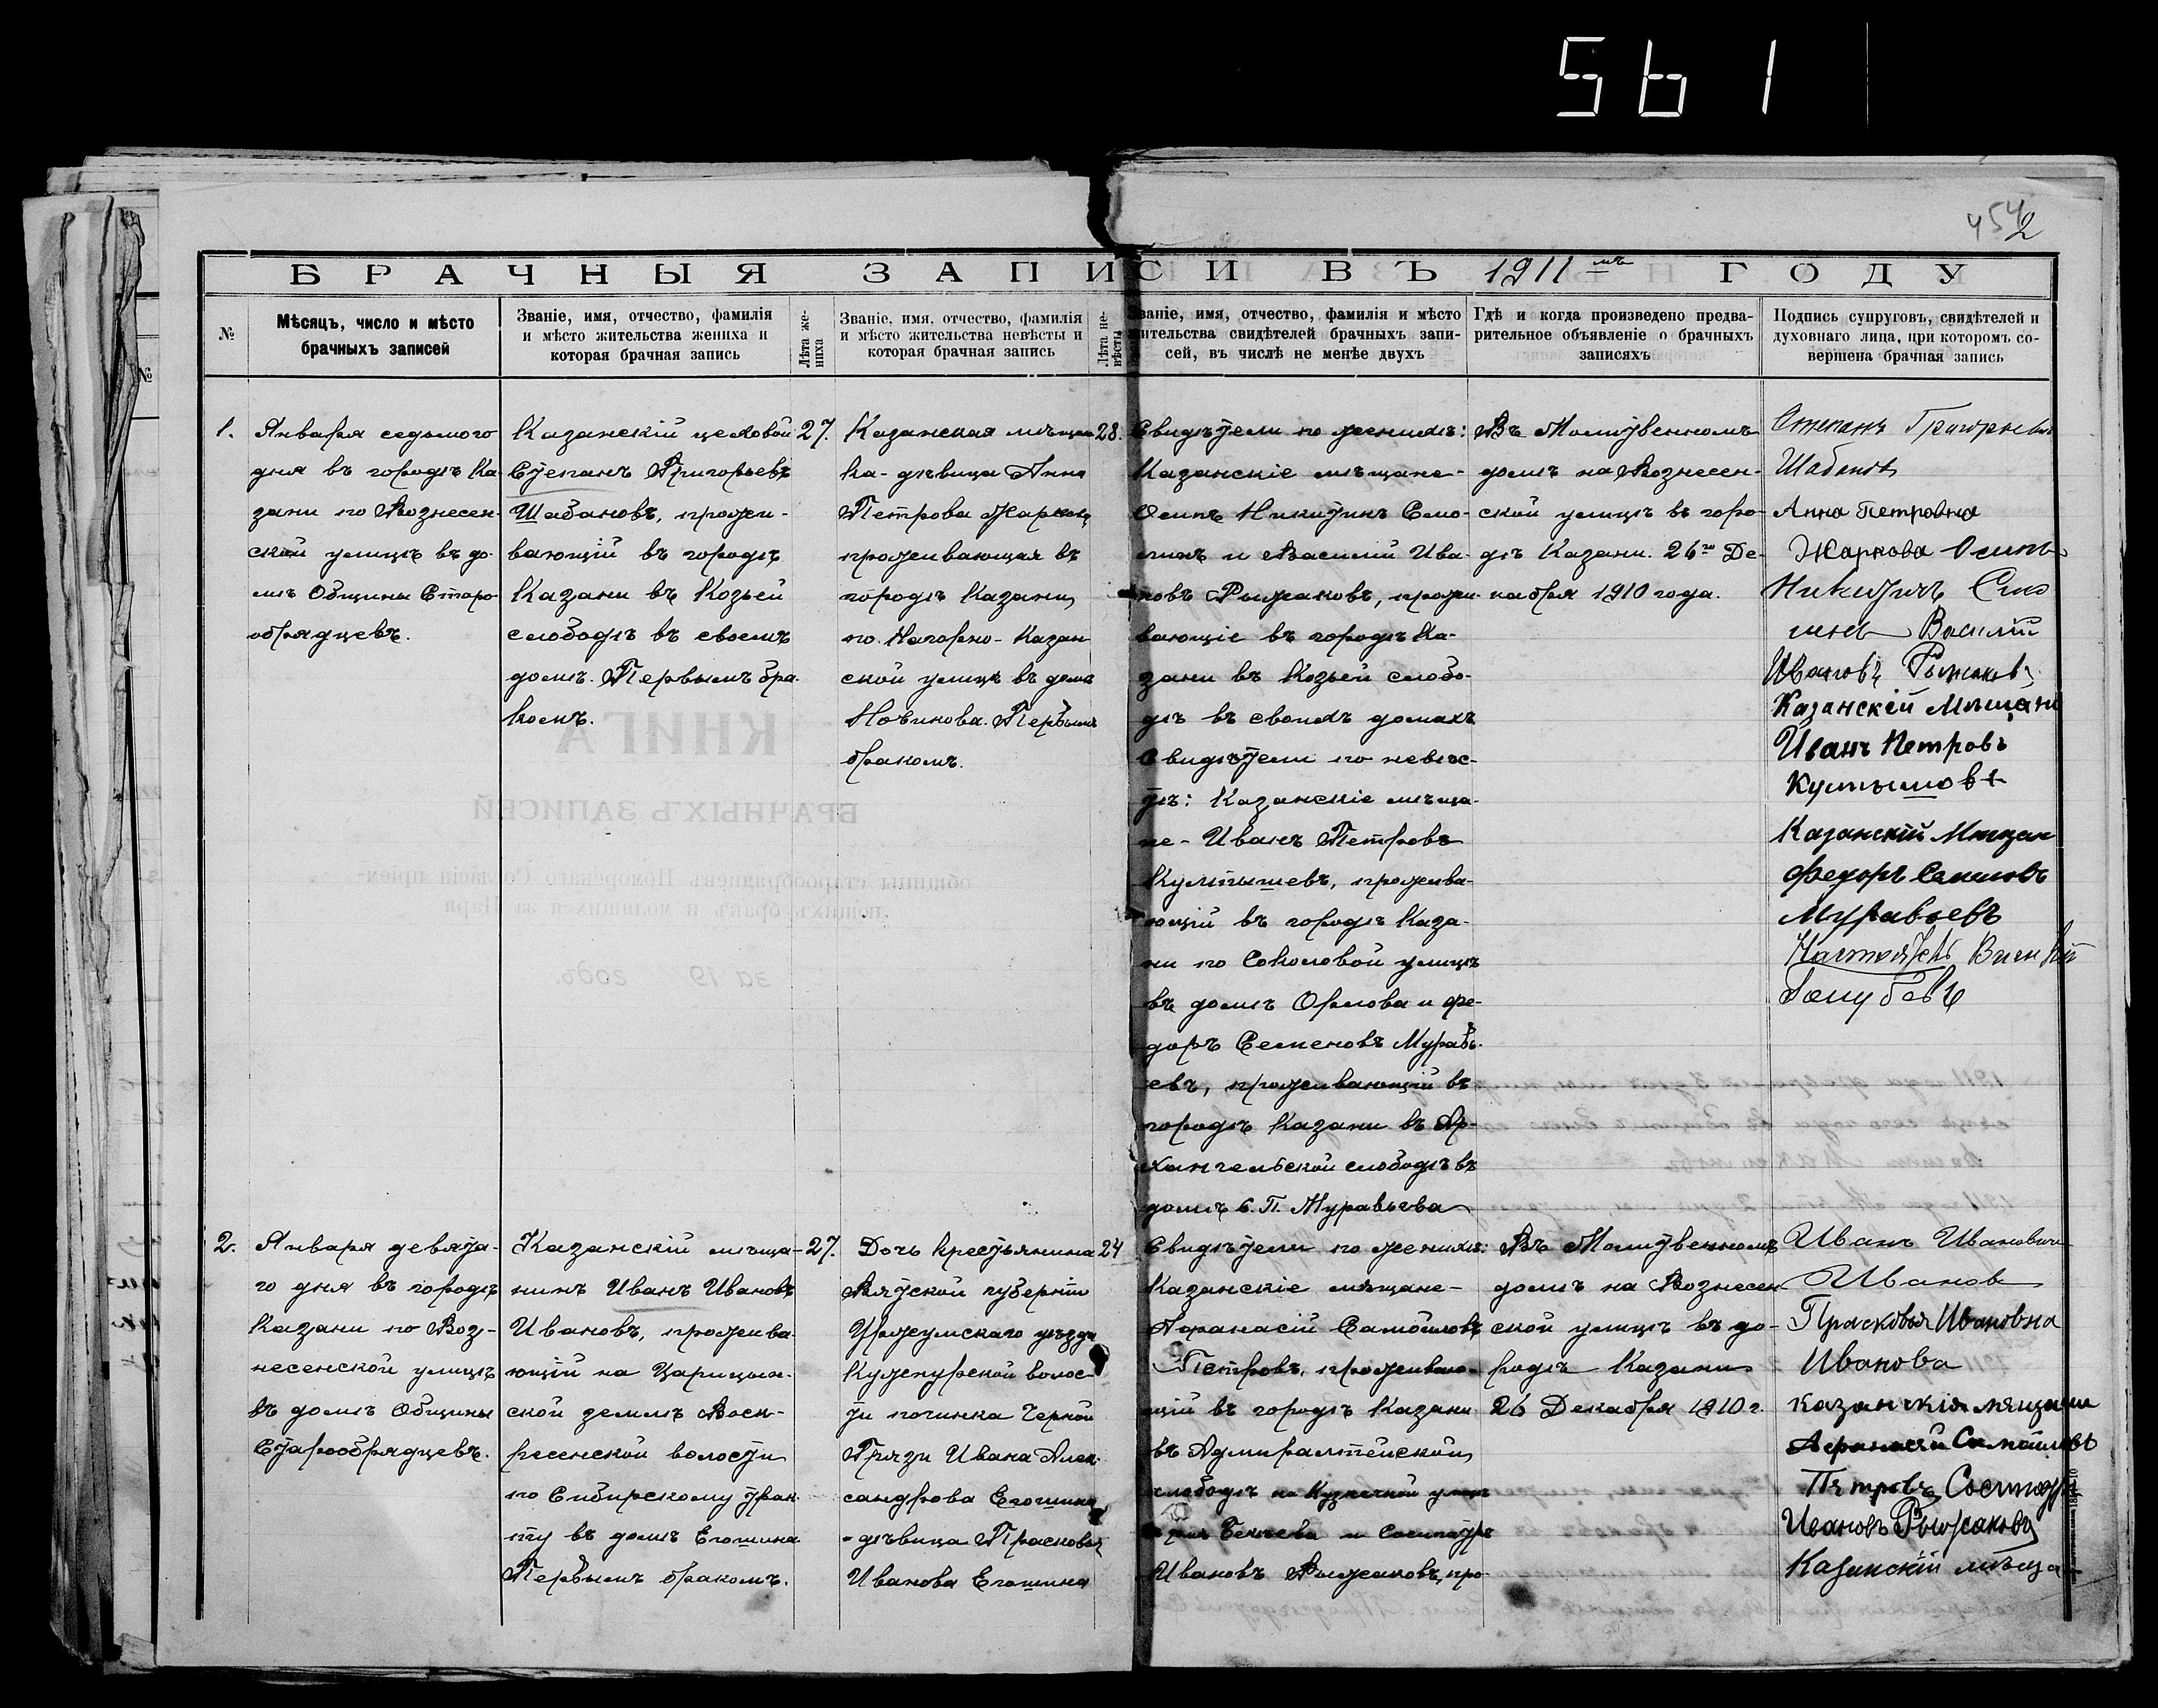 561
454
2
БРАЧНЫЯ ЗАПИСИ ВЪ 1911 мъ ГОДУ
№
Мѣсяцъ, число и мѣсто
брачныхъ записей
Званіе, имя, отчество, фамилія
и мѣсто жительства жениха и
которая брачная запись
Лѣта же-
ниха
Званіе, имя, отчество, фамилія
и мѣсто жительства невѣсты и
которая брачная запись
Лѣта не-
вѣсты
Званіе, имя, отчество, фамилія и мѣсто
жительства свидѣтелей брачныхъ запи-
сей, въ числѣ не менѣе двухъ
Гдѣ и когда произведено предва-
рительное объявленіе о брачныхъ
записяхъ
Подпись супруговъ, свидѣтелей и
духовнаго лица, при которомъ со-
вершена брачная запись
1.
Января седьмого
дня въ городѣ Ка-
зани по Вознесен-
ской улицѣ въ до-
мѣ Общины Старо-
обрядцевъ.
Казанскій цеховой
Степанъ Григорьевъ
Шабановъ, прожи-
вающій въ городѣ
Казани въ Козьей
слободѣ въ своемъ
домѣ. Первымъ бра-
комъ.
27.
Казанская мѣщан
ка - дѣвица Анна
Петрова Жаркова
проживающая въ
городѣ Казани
по Нагорно-Казан
ской улицѣ въ домѣ
Новикова. Первымъ
бракомъ.
28.
Свидѣтели по женихѣ:
Казанскіе мѣщане -
Осипъ Никитинъ Симо-
нинъ и Василій Ива-
новъ Рыжаковъ, прожи-
вающіе въ городѣ Ка-
зани въ Козьей слобо-
дѣ въ своихъ домахъ
Свидѣтели по невѣс-
тѣ: Казанскіе мѣща-
не - Иванъ Петровъ
Култышевъ, прожива-
ющій въ городѣ Каза-
ни по Соколовой улицѣ
въ домѣ Орлова и Фе-
доръ Семеновъ Муравь-
евъ, проживающій въ
городѣ Казани въ Ар-
хангельской слободѣ въ
домѣ б. П. Муравьева
Въ Молитвенномъ
домѣ на Вознесен-
ской улицѣ въ горо-
дѣ Казани. 26го Де-
кабря 1910 года.
Степанъ Григорьевъ
Шабановъ
Анна Петровна
Жаркова Осипъ
Никитинъ
Василій
Ивановъ Рыжаковъ
Казанскій Мѣщани
Иванъ Петровъ
Казанскій Мещан
Федоръ Семеновъ
Муравьевъ
Настоятель
Голубевъ
2.
Января девята-
го дня въ городѣ
Казани по Воз-
несенской улицѣ
въ домѣ Общины
Старообрядцевъ.
Казанскій мѣща-
нинъ Иванъ Ивановъ
Ивановъ, прожива-
ющій на Царицын-
ской землѣ Воск-
ресенской волости
по Сибирскому трак
ту въ домѣ Егошина
Первымъ бракомъ.
27.
Дочь крестьянина
Вятской губерніи
Уржумскаго уѣзда
Кужнурской волос-
ти починка Черной
Грязи Ивана Алек-
сандрова Егошина
- дѣвица Прасковья
Иванова Егошина
24
Свидѣтели по женихѣ:
Казанскіе мѣщане -
Афанасій Самойловъ
Петровъ, проживаю-
щій въ городѣ Казани
въ Адмиралтейской
слободѣ на Кузнечной улицѣ
Ивановъ Рыжаковъ, про-
Въ Молитвенномъ
домѣ на Вознесен-
ской улицѣ въ го-
родѣ Казани
26 Декабря 1910 г.
Иванъ Ивановичъ
Ивановъ
Прасковья Ивановна
Иванова
Казанскія мящани
Афанасій Самойловъ
Петровъ
Ивановъ Рыжаковъ
Казанскій мѣща